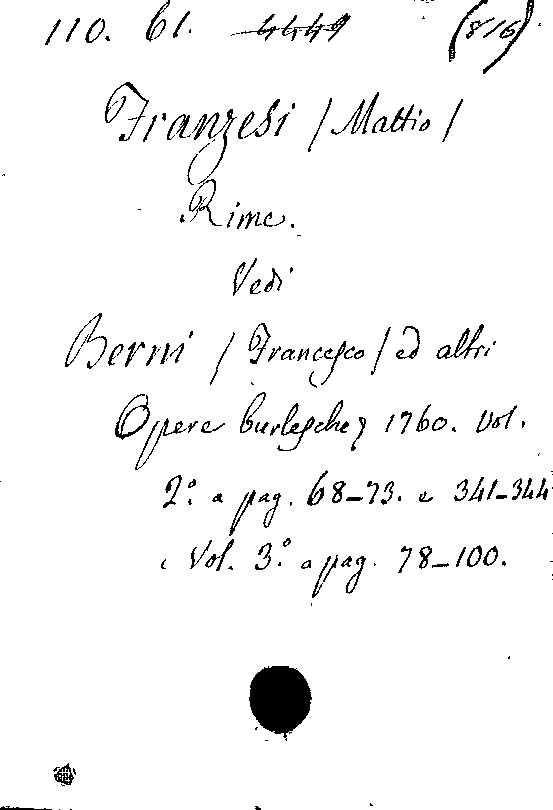 110. 61. 4449 (8/16)
Franzesi / Mattio /
Rime.
Vedi
Berni / Francesco / ed altri
Opere burlesche, 1760. Vol.
2.º a pag. 68-73. e 341-344
e Vol. 3.º a pag. 78-100.